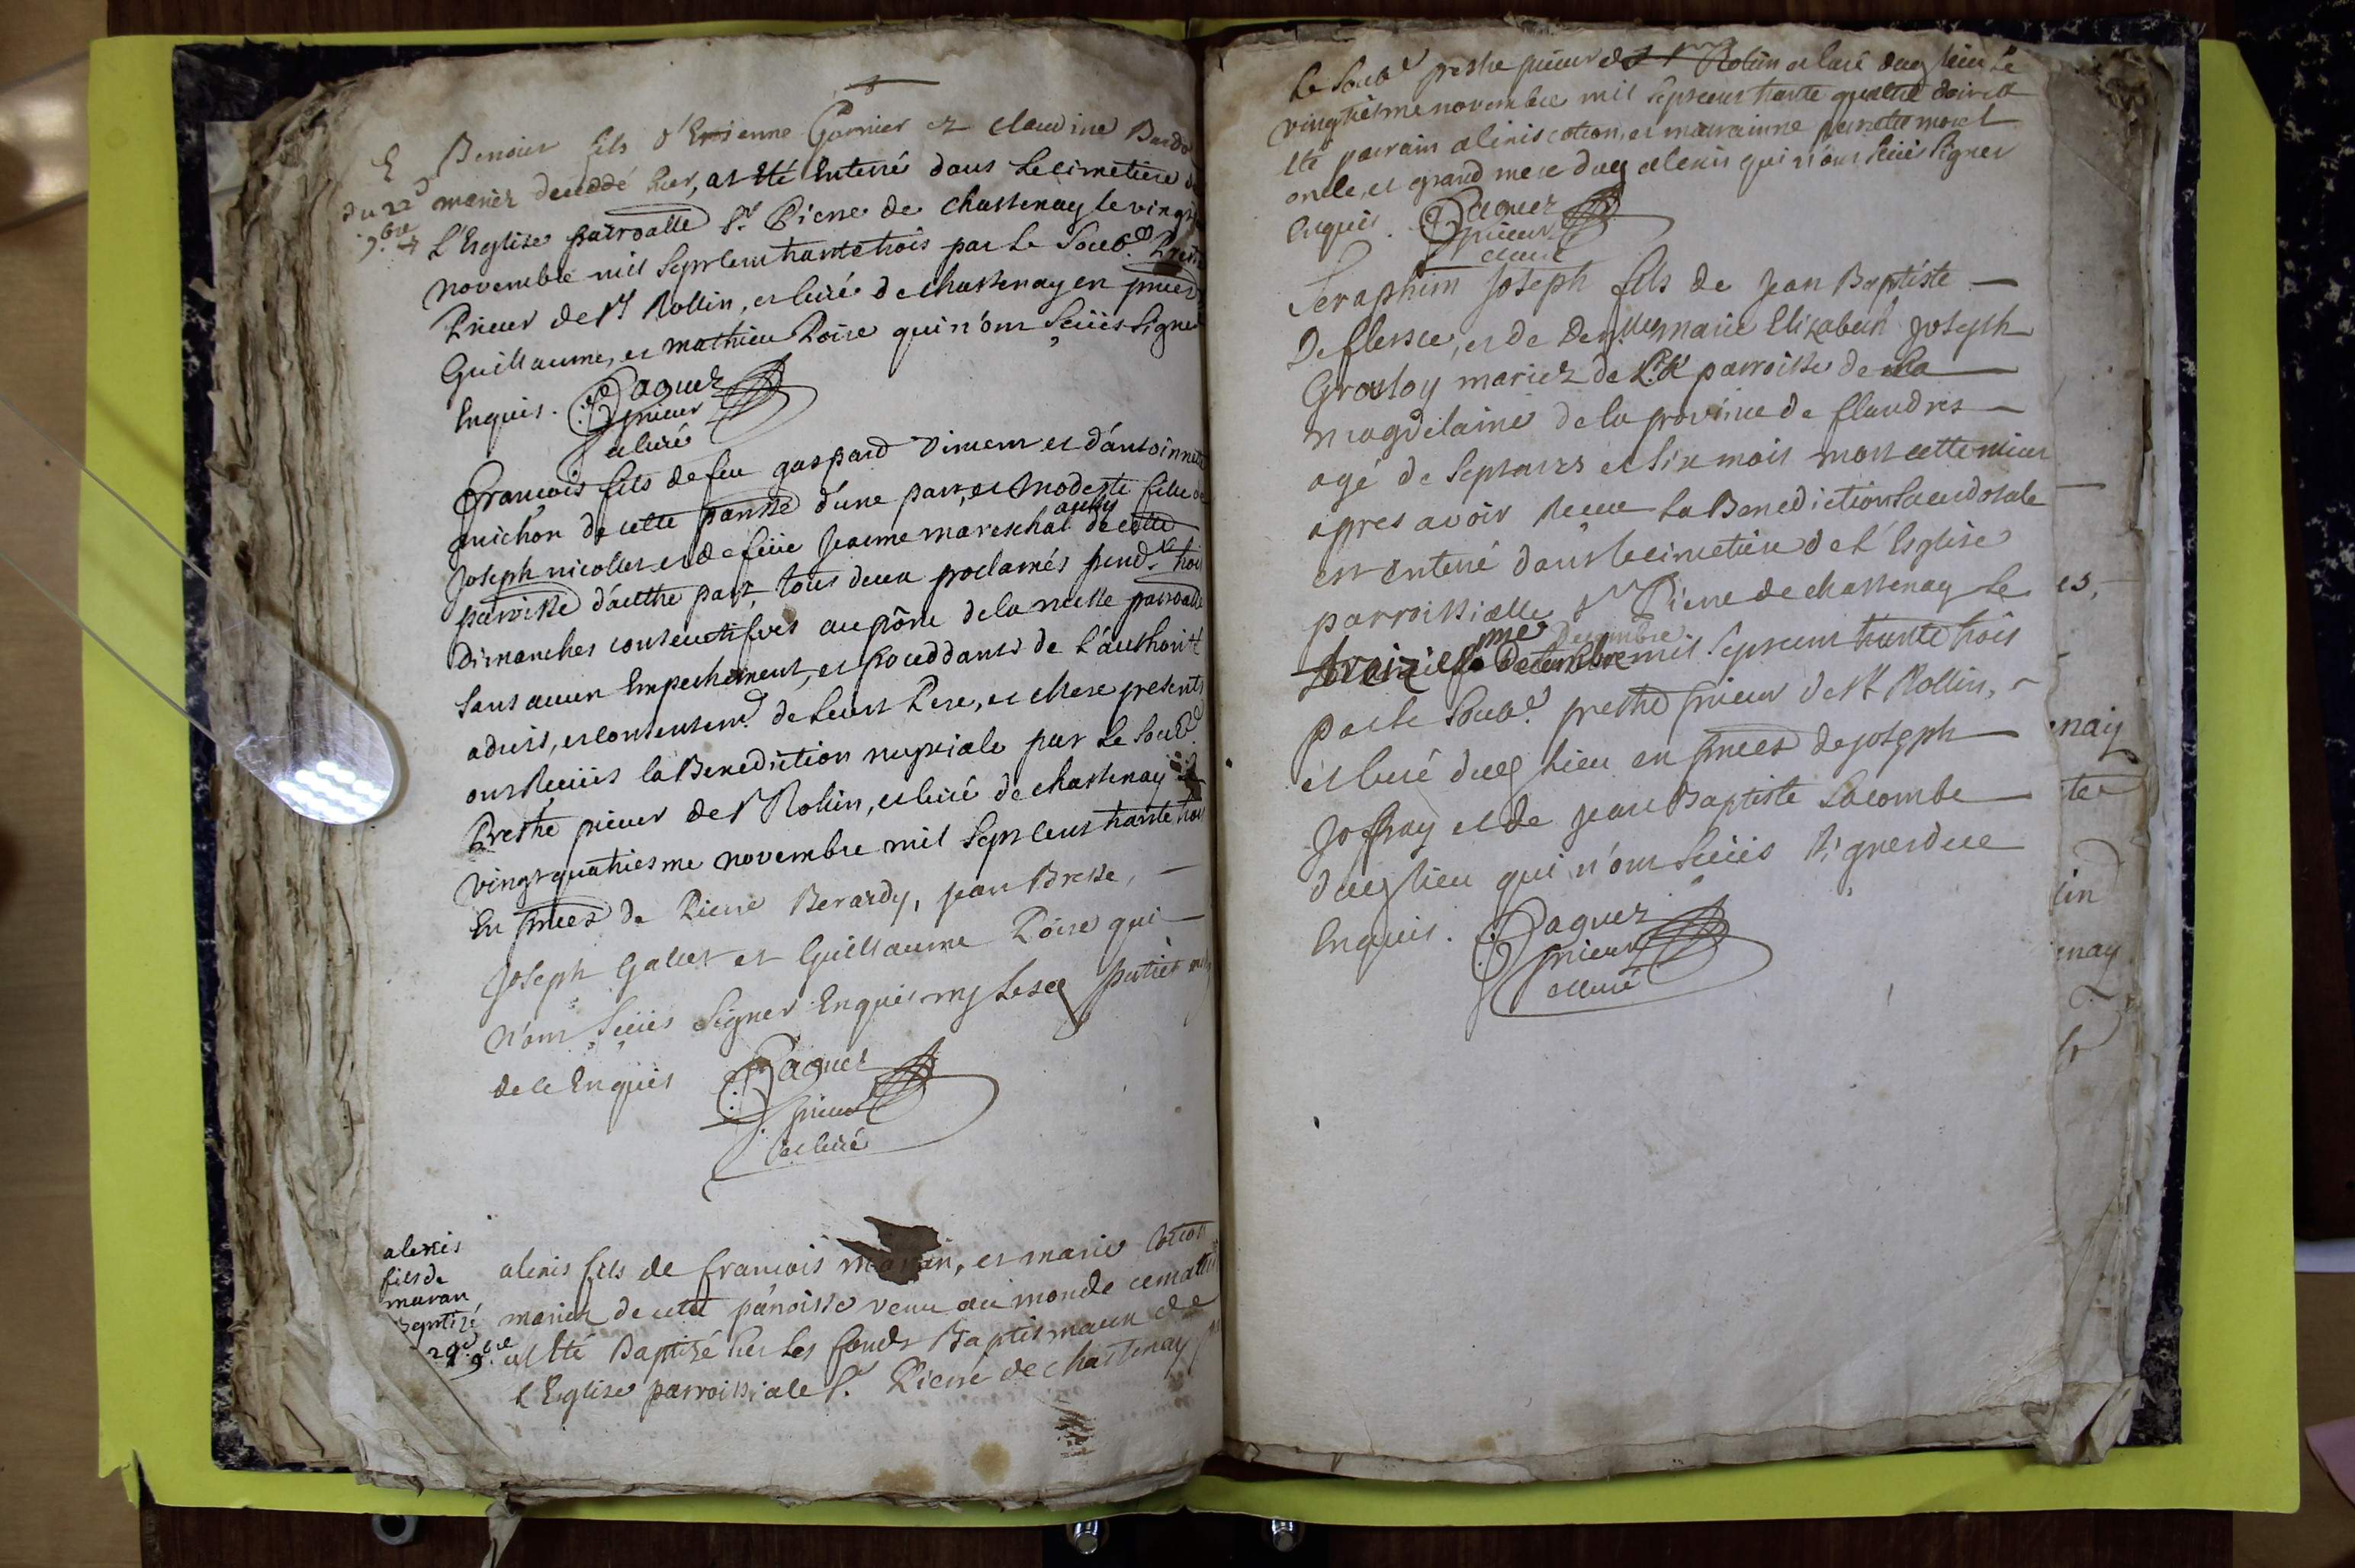 E Benoier fils d'Estienne Garnier et claudine
du 22d mariez deceddé hier, at Eté Enterré dans le cimetiere
9.bre L'Esglise parroalle St. Pierre de chastenay le vingt
novembre mil Sept cent trante trois par le Soub.é
Prieur de St Rollin, et curé de chastenay en pnces
Guillaume, et mathieu Poize qui n'ont Sceües Signer
Enquis. Paquez
prieur
et curé
françois fils de feu gaspard vincent et d'antoinnette
michon de cette parrsse d'une part, et modeste fille de
Joseph nicollet, et de feüe Jeanne mareschal aussy de cette
parroisse d'autre part, tous deux proclamés pend.t trois
Dimanches consecutifves au prône de la messe parroalle
Sans aucun Empechement, et proceddants de l'authorité
aduis, et consentem.t de Leurs Pere, et Mere presents
ont Receües la Benediction nuptiale par le Soub.é
Prestre prieur de St Rollin, et curé de chastenay
vingt quatriesme novembre mil Sept cent trante trois
En pnces de Pierre Berardy, jean Bresse,
Joseph Gallet et Guillaume Poize qui
n'ont Sceües Signer Enquis ny Lesd. parties
de ce Enquis Paquez
prieur
et curé
alexis
fils de
maran
Baptizé
29d 9.bre
alexis fils de francois maran, et marie
mariez de cette parroisse venu au monde ce matin
at Eté Baptizé sur Les fonds Baptismaux de
L'Eglise parroissiale St. Pierre de chastenay
Le Soub.é prestre prieur de St Rollin et curé dud. lieu Le
vingtiesme novembre mil Sept cent trante quattre
Eté parrain alexis cotton, et marainne pernette morel
oncle, et grand mere dud. alexis qui n'ont Sceüe Signer
Enquis. Paquez
prieur
et curé
Seraphim Joseph fils de Jean Baptiste
Deflesse, et de Dem.lle marie Elizabeth Joseph
mariez de la parroisse de la
magdelaine de la province de flandres
agé de Sept ans et Six mois mort cette nuict
apres avoir Receue La Benediction Sacerdotale
est enterré dans le cimetiere de L'Esglise
parroissialle St Pierre de chastenay le
traiziesme Decembre mil Sept cent trante trois
par le Soub.é prestre prieur de St Rollin,
et curé dud. lieu en pnces de joseph
Joffray et de jean Baptiste Lacombe
dud. lieu qui n'ont Sceües Signer de ce
Enquis. Paquez
prieur
et curé